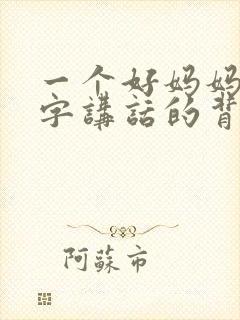 一个好妈妈
字講話的背
阿蘇市